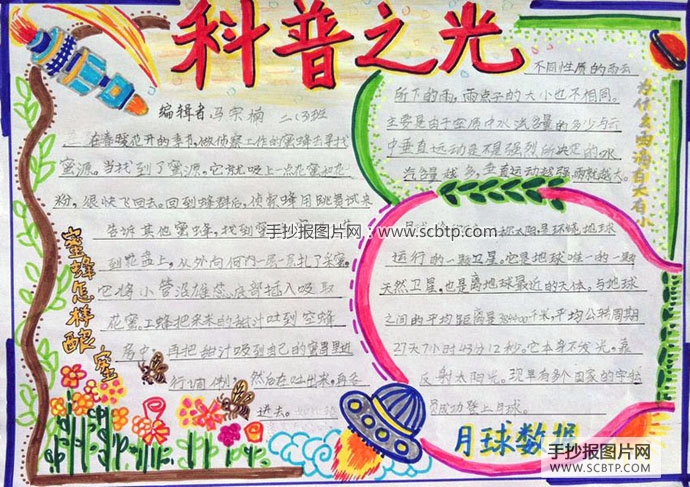 科普之光
编辑者冯宗楠 二(3)班
在春暖花开的季节,做侦察工作的蜜蜂去寻找
蜜源。当找到了蜜源。它就吸上一点花蜜和花
粉,很快飞回去。回到蜂群后,侦察蜂用跳舞来
告诉其他蜜蜂,找到
到花盘上,从外向
它将小管没雄蕊底部插入吸取
花蜜工蜂把采来的甜汁吐到空蜂
房中,再把甜汁吸到自己的蜜胃里进
行调制,然后在吐出来,再吞
进去。
蜜蜂怎样酿蜜
不同性质的雨云
所下的雨,雨点子的大小也不相同。
主要是由于空质中水汽含量的多少与云
中垂直运动是不很强烈所决定的水
汽含量越多,垂直运动越强雨就越大。
为什么雨滴有大有小
太阳是环绕地球
运行的一颗卫星。它是地球唯一的一颗
天然卫星,也是离地球最近的天体,与地球
之间的平均距离是384400千米,平均公转周期
27天7小时43分12秒。它本身不发光,靠
反射太阳光。现具有多个国家的宇航
员成功登上月球。
月球数据
手抄报图片网:www.scbtp.com
手抄报图片网
WWW.SCBTP.COM